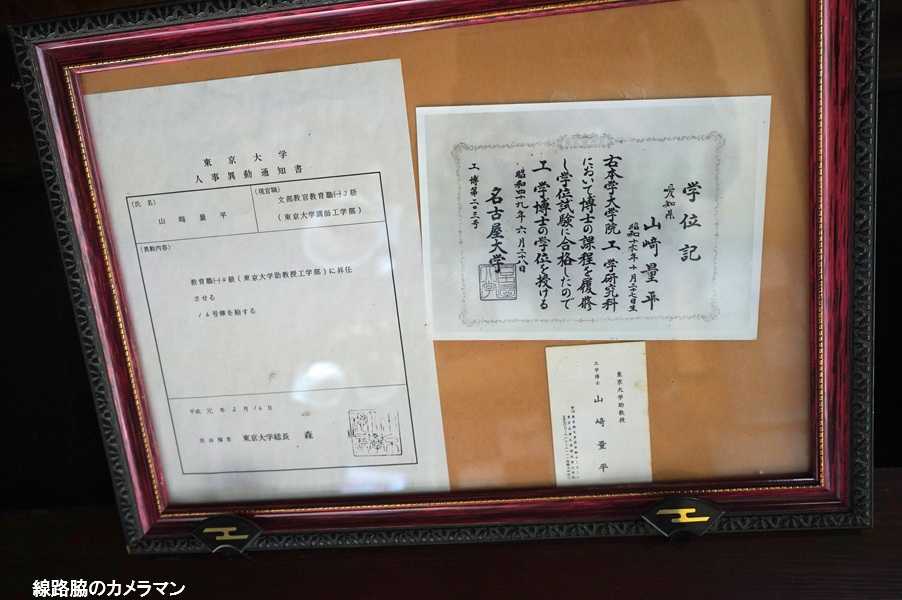 東京大学
人事異動通知書
(氏名)
山﨑量平
(現官職)
文部教官教育職(一)2級
(東京大学講師工学部)
(異動内容)
教育職(一) 級(東京大学助教授工学部)に昇任
させる
号俸を給する
平成元年2月16日
任命権者 東京大学総長 森
学位記
愛知県
山﨑量平
右本学大学院工学研究科
において博士の課程を履修
し学位試験に合格したので
工学博士の学位を授ける
昭和四十九年六月二十八日
名古屋大学
工博第二二三号
東京大学助教授
工学博士
山﨑量平
線路脇のカメラマン